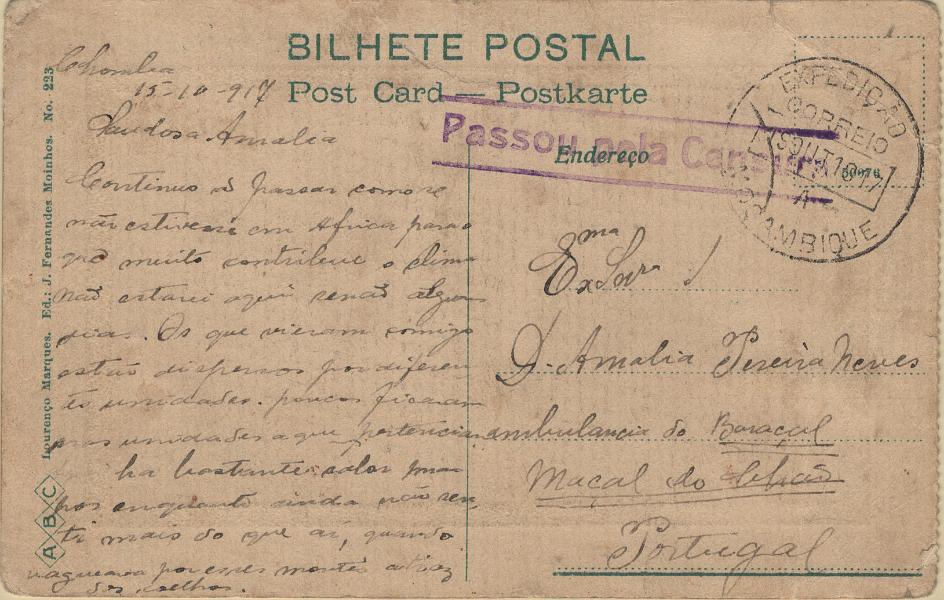 BILHETE POSTAL
Post Card — Postkarte
Endereço
Passou pela Censura
EXPEDIÇÃO
CORREIO
19 OUT 1917
A
MOÇAMBIQUE
Lourenço Marques. Ed.: J. Fernandes Moinhos. No. 223
ABC
15-10-917
Saudosa Amalia
Continuo a passar como se
não estivesse em Africa para o
que muito contribue o clima
não estarei aqui senão alguns
dias. Os que vieram comigo
estão dispersos por diferen
tes unidades. poucos ficaram
nas unidades a que pertenciam
ha bastante calor mas
por enquanto ainda não sen
ti mais do que ai, quando
vagueava por esses montes atraz
dos coelhos.
Exma Snra
D. Amalia Pereira Neves
ambulancia do Baraçal
Maçal do Chão
Portugal